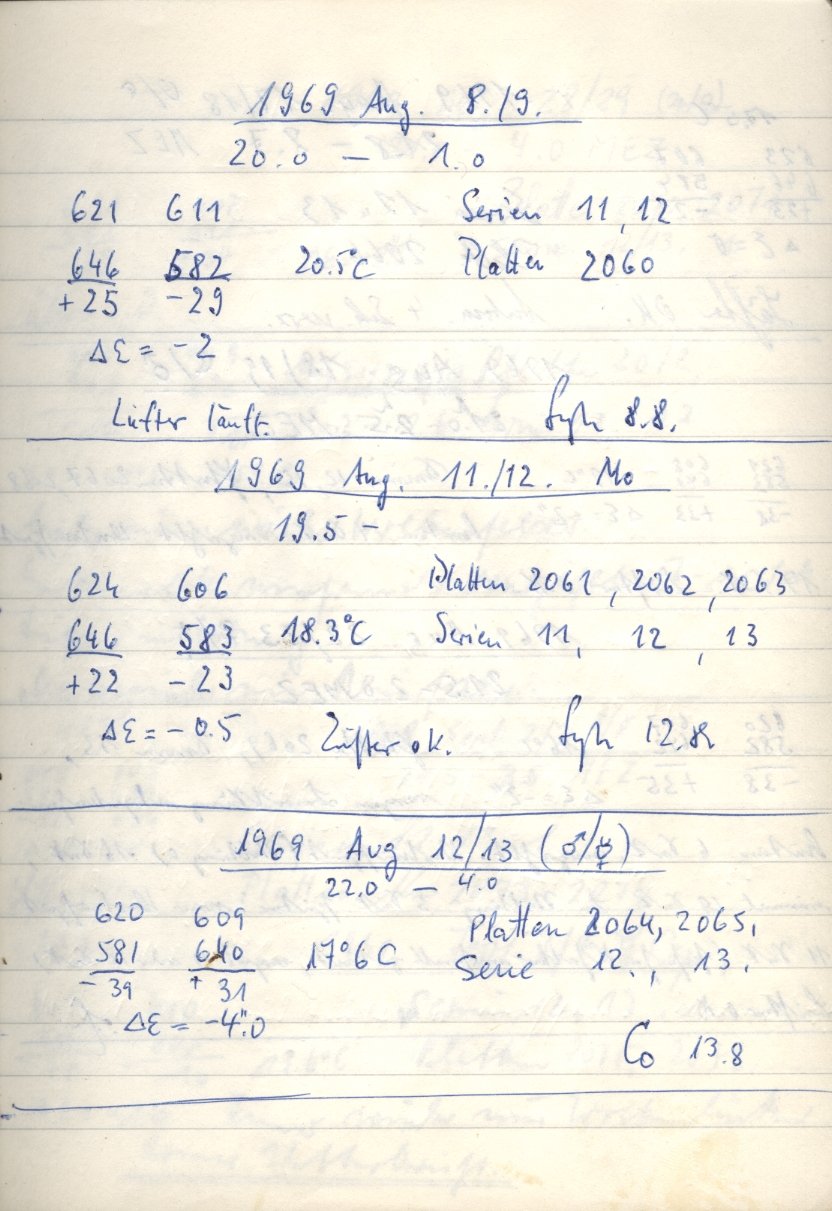 1969 Aug. 8./9.
20.0 — 1.0
621 611 Serien 11, 12
646 582 20.5°C Platten 2060
+25 -29
Δε = -2
Lüfter läuft. 8.8.
1969 Aug. 11./12. Mo
19.5 -
624 606 Platten 2061, 2062, 2063
646 583 18.3°C Serien 11, 12, 13
+22 -23
Δε = -0.5 Lüfter ok. 12.8.
1969 Aug 12/13 (♂/☿)
22.0 — 4.0
620 609 Platten 2064, 2065,
581 640 17°6 C Serie 12., 13.
-39 +31
Δε = -4".0
Co 13.8